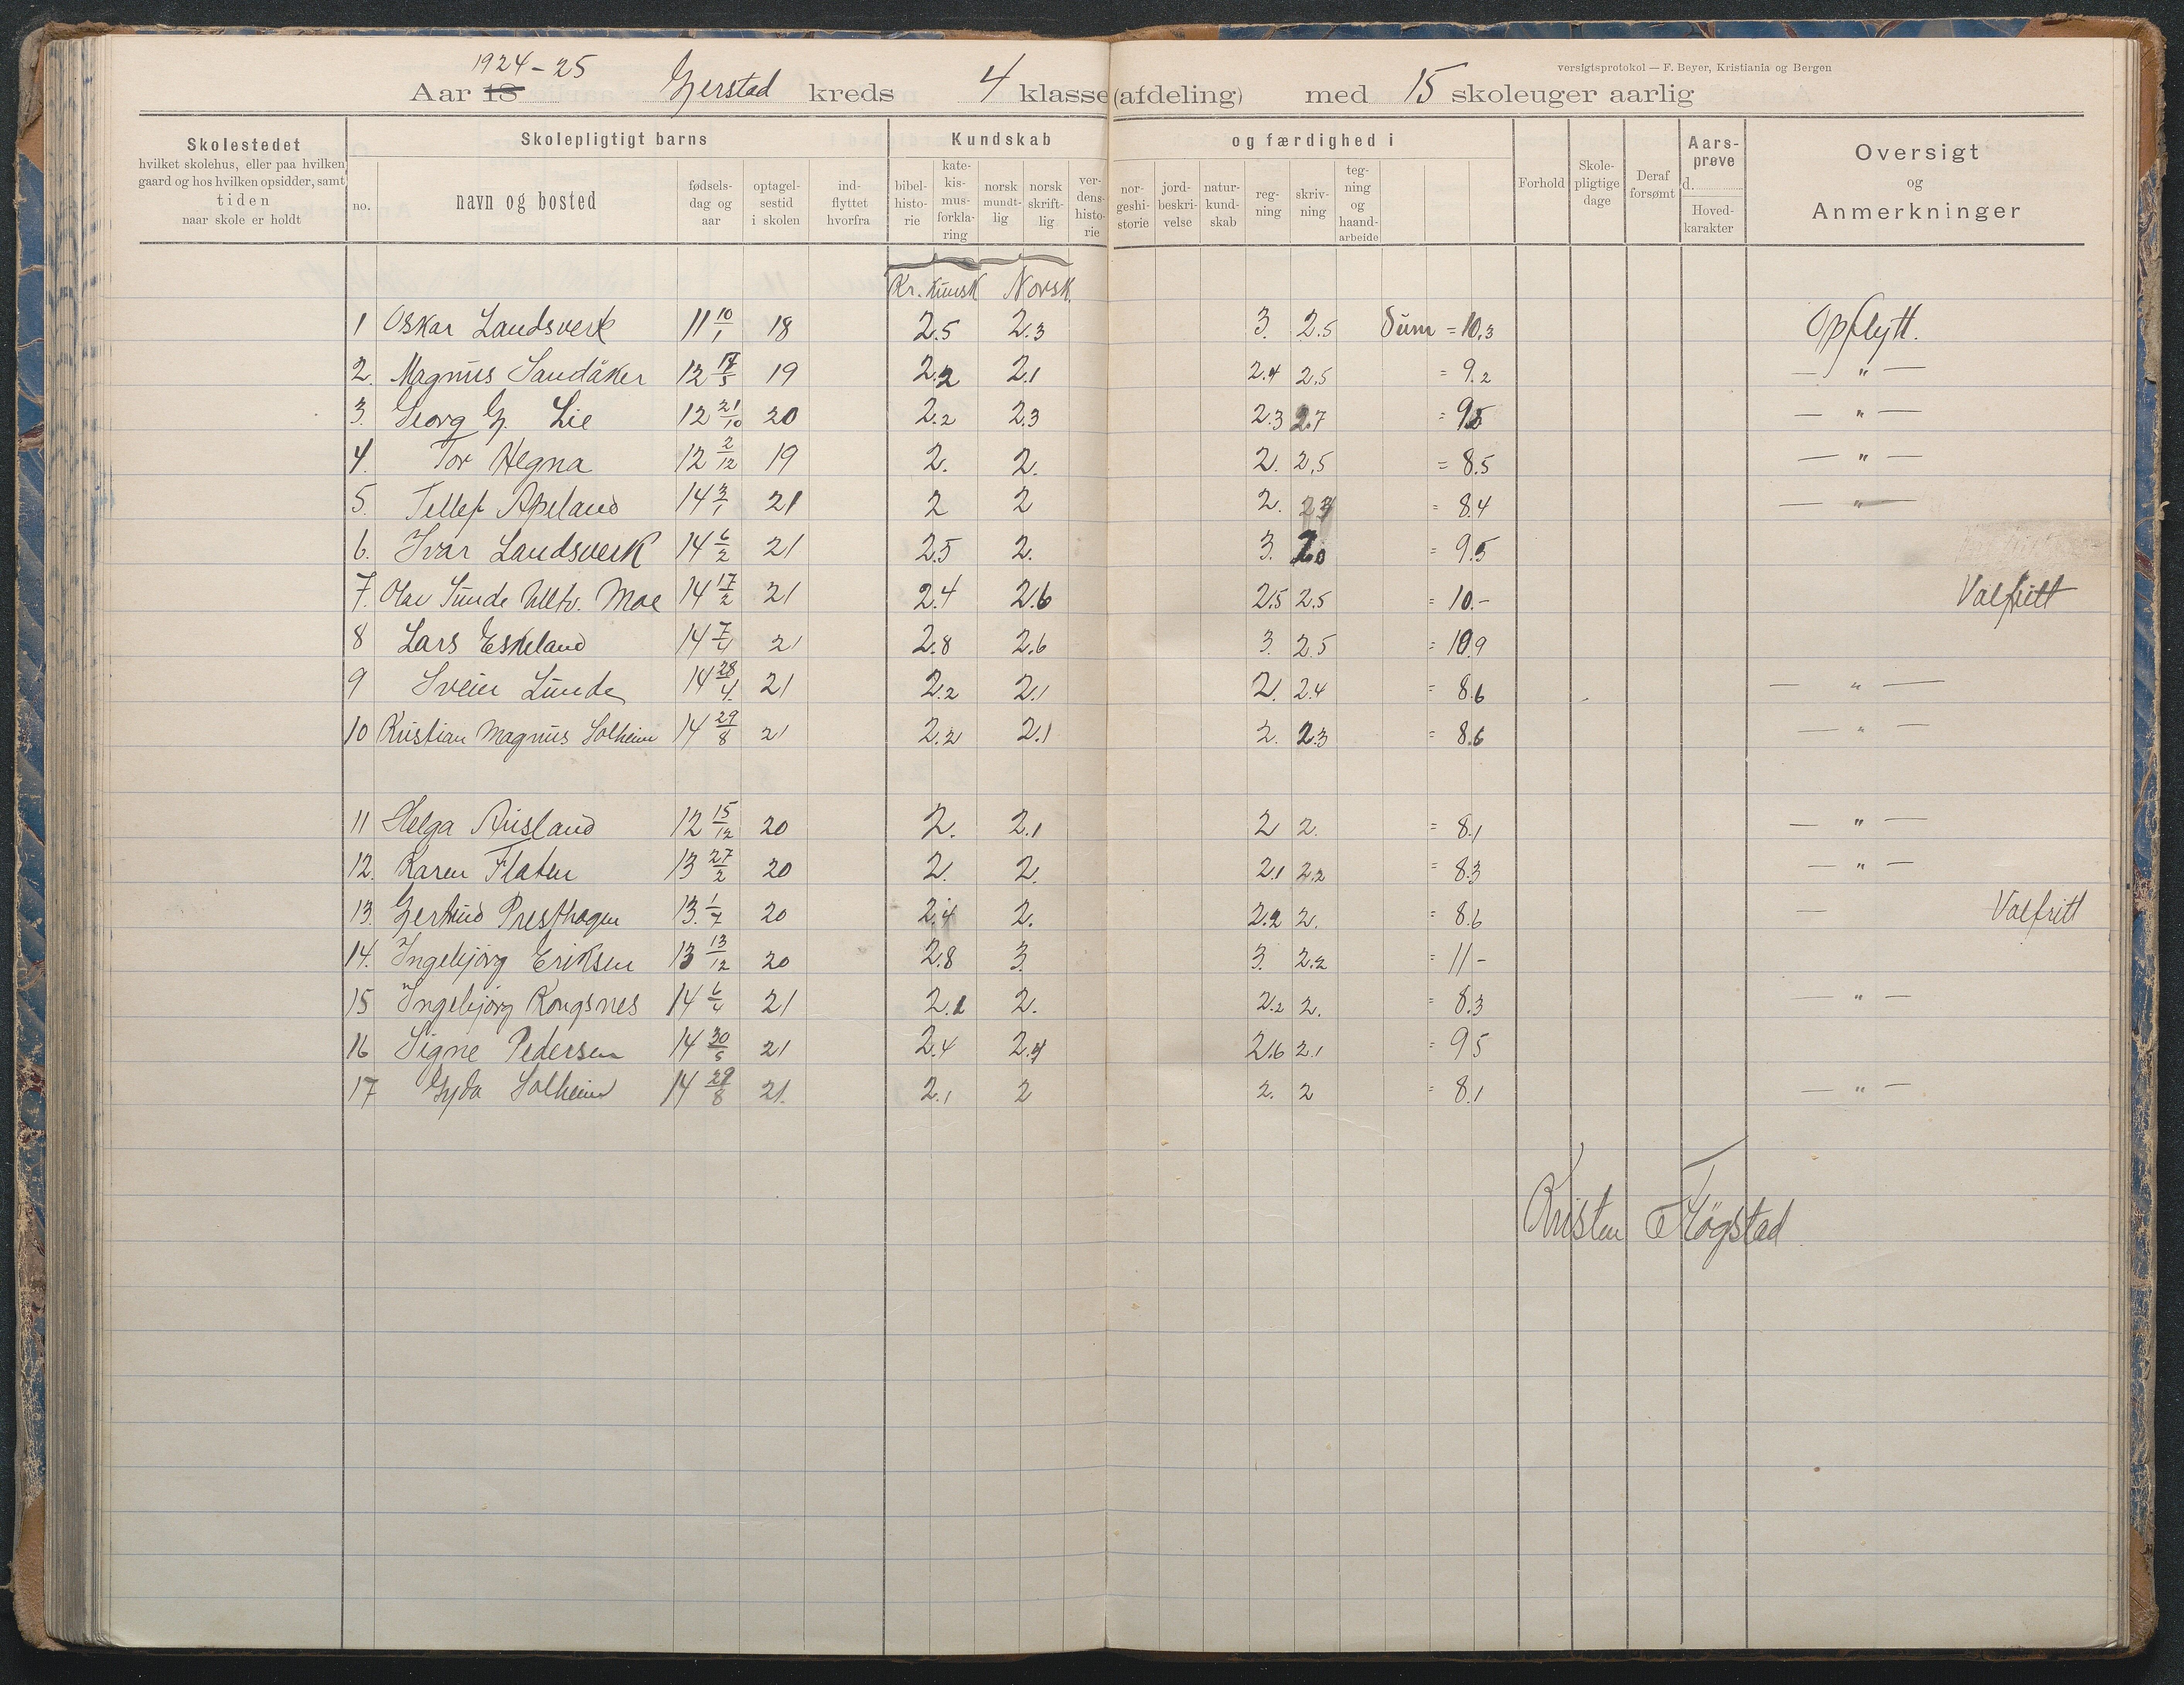 versigtsprotokol — F. Beyer, Kristiania og Bergen
1924-25
Aar 18 Gjerstad kreds 4 klasse (afdeling) med 15 skoleuger aarlig
Skolestedet
hvilket skolehus, eller paa hvilken
gaard og hos hvilken opsidder, samt
tiden
naar skole er holdt
Skolepligtigt barns
no.
navn og bosted
fødsels-
dag og
aar
optagel-
sestid
i skolen
ind-
flyttet
hvorfra
Kundskab
bibel-
histo-
rie
kate-
kis-
mus-
forkla-
ring
norsk
mundt-
lig
norsk
skrift-
lig
ver-
dens-
histo-
rie
og færdighed i
nor-
geshi-
storie
jord-
beskri-
velse
natur-
kund-
skab
reg-
ning
skriv-
ning
teg-
ning
og
haand-
arbeide
Forhold
Skole-
pligtige
dage
Deraf
forsømt
Aars-
prøve
d.
Hoved-
karakter
Oversigt
og
Anmerkninger
Kr. kunsk Norsk
1 Oskar Landsverk 11 10/1 18 2.5 2.3 3. 2.5 Sum = 10,3 Opflytt.
2. Magnus Sandåker 12 19 2.2 2.1 2.4 2.5 = 9.2 — " —
3. Georg G. Lie 12 21/10 20 2.2 2.3 2.3 2.7 = 9.5 — " —
4. Tor Hegna 12 2/12 19 2. 2. 2. 2,5 = 8.5 — " —
5. Tellef Apeland 14 3/1 21 2 2 2. = 8.4 — " —
6. Ivar Landsverk 14 6/2 21 2.5 2. 3. 2.0 = 9.5
7. Olav Sunde Moe 14 17/2 21 2.4 2.6 2.5 2.5 = 10.- Valfritt
8 Lars Eskeland 14 7/4 21 2.8 2.6 3. 2.5 = 10.9
9 Svein Lunde 14 28/4 21 2.2 2.1 2. 2.4 = 8.6 — " —
10 Kristian Magnus Solheim 14 29/8 21 2.2 2.1 2. 2.3 = 8.6 — " —
11 Helga Ausland 12 15/12 20 2. 2.1 2 2. = 8.1 — " —
12. Karen Flaten 13 27/2 20 2. 2. 2.1 2.2 = 8.3 — " —
13. Gertrud Presthagen 13. 1/7 20 2.4 2. 2.2 2. = 8.6 — Valfritt
14. Ingebjørg Eriksen 13 13/12 20 2.8 3. 3. 2.2 = 11-
15 Ingebjørg Kongsnes 14 6/4 21 2.1 2. 2.2 2. = 8.3 — " —
16 Signe Pedersen 14 30/5 21 2.4 2.4 2.6 2.1 = 9.5
17 Gyda Solheim 14 29/8 21. 2.1 2 2. 2 = 8.1 — " —
Kristen Fløgstad